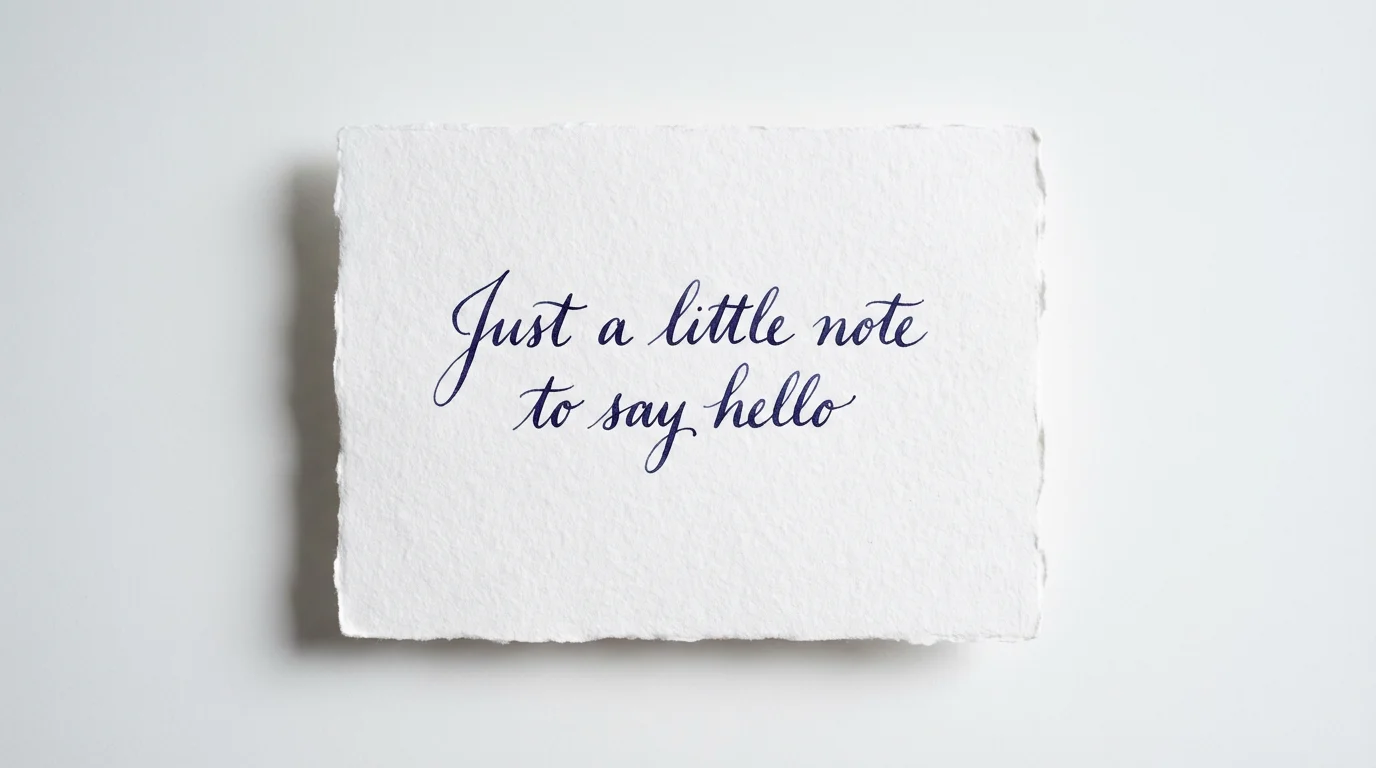 Just a little note
to say hello